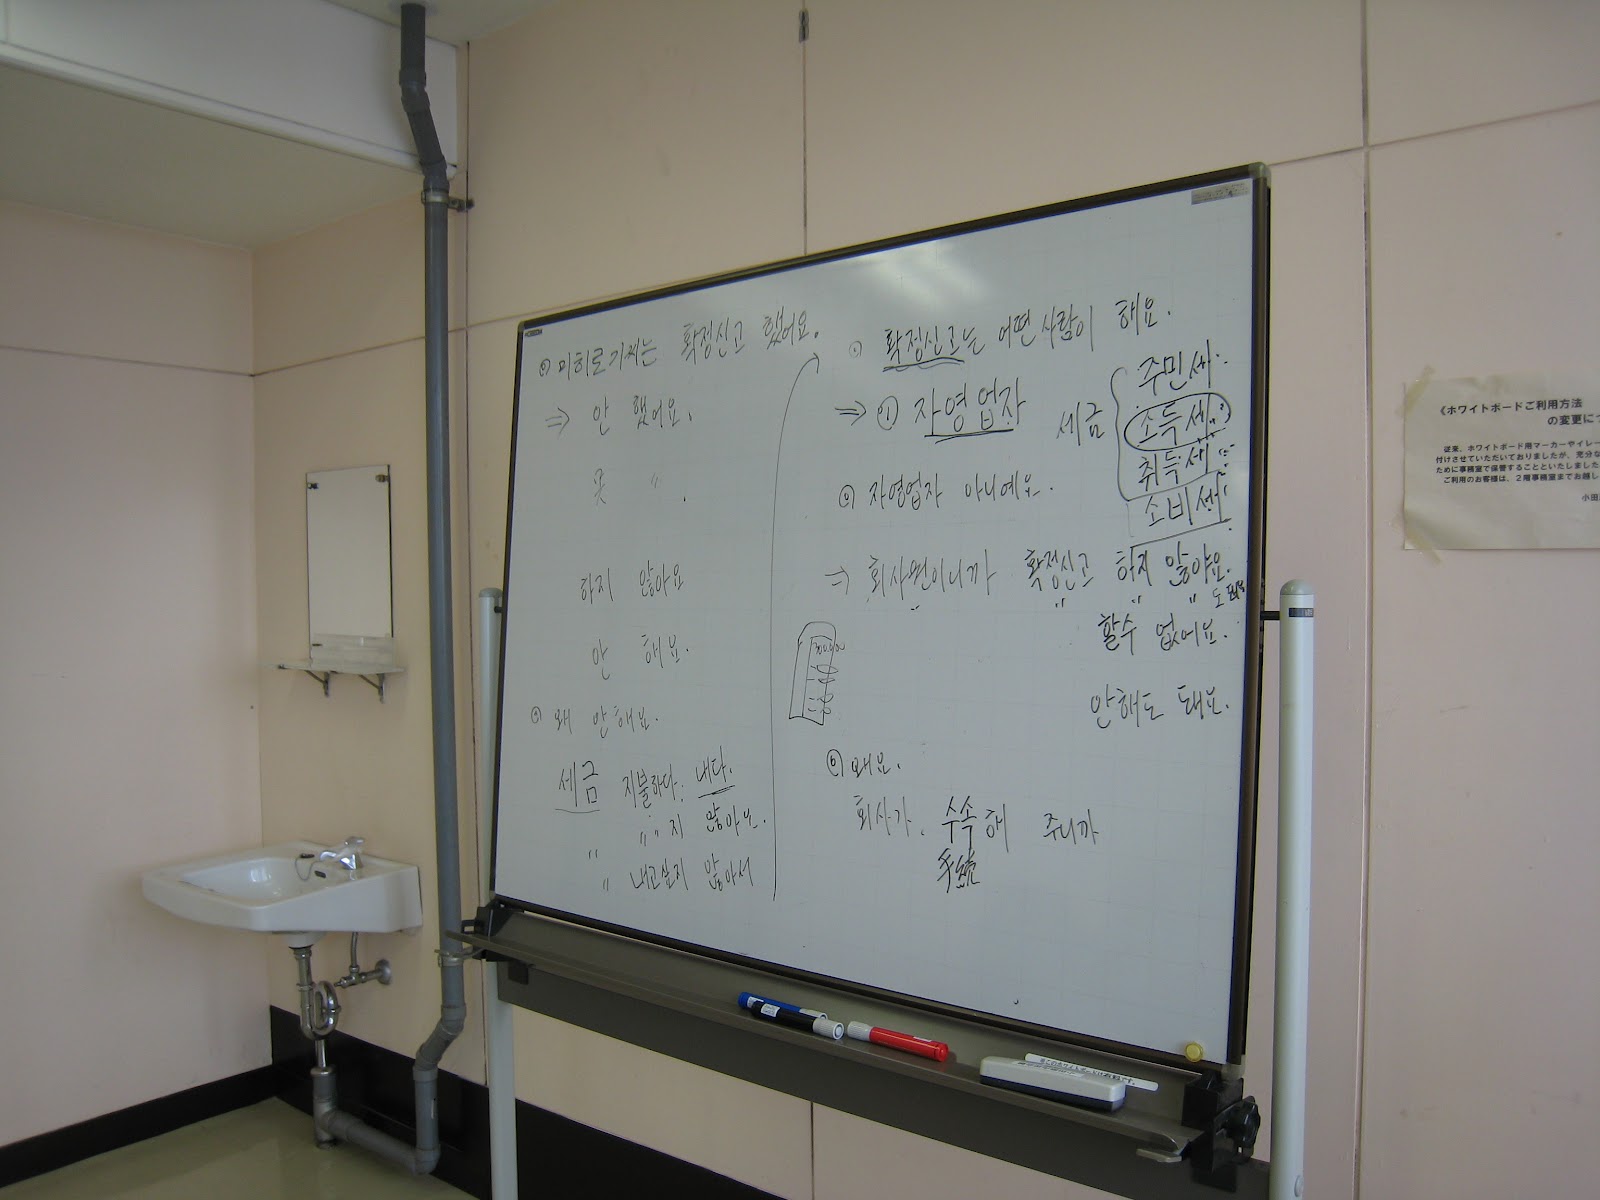 미히로기씨는 확정신고 했어요.
⇒ 안 했어요.
못 〃 .
하지 않아요
안 해요.
왜 안해요.
세금 지불하다. 내다.
〃 〃지 않아요.
〃 내고싶지 않아서
확정신고는 어떤 사람이 해요.
⇒ ① 자영업자
세금
주민세.
소득세.
취득세
소비세
자영업자 아니에요.
⇒ 회사원이니까 확정신고 하지 않아요.
〃 〃 〃 〃 도 돼요
할수 없어요.
안해도 돼요.
왜요.
회사가. 수속해 주니까
手続
《ホワイトボードご利用方法
の変更に
従来、ホワイトボード用マーカーやイレー
付けさせていただいておりましたが、充分な
ために事務室で保管することといたしました
ご利用のお客様は、2階事務室までお越し
小田